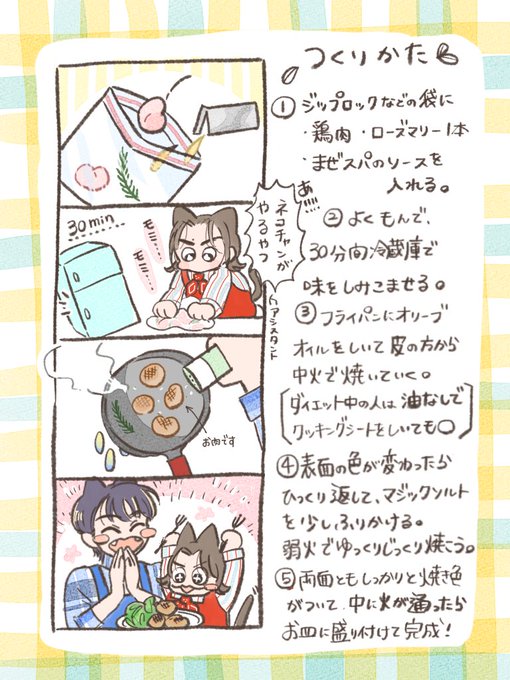 つくりかた
① ジップロックなどの袋に
・鶏肉 ・ローズマリー1本
・まぜスパのソースを
入れる。
② よくもんで、
30分間冷蔵庫で
味をしみこませる。
③ フライパンにオリーブ
オイルをしいて皮の方から
中火で焼いていく。
ダイエット中の人は油なしで
クッキングシートをしいても○
④ 表面の色が変わったら
ひっくり返して、マジックソルト
を少しふりかける。
弱火でゆっくりじっくり焼こう。
⑤ 両面ともしっかりと焼き色
がついて、中に火が通ったら
お皿に盛り付けて完成!
30min
モミ…
モミ…
あ!!!!
ネコチャンが
やるやつ
アシスタント
お肉です